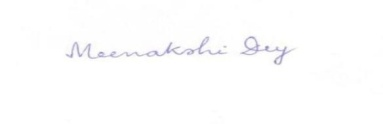 Meenakshi Dey